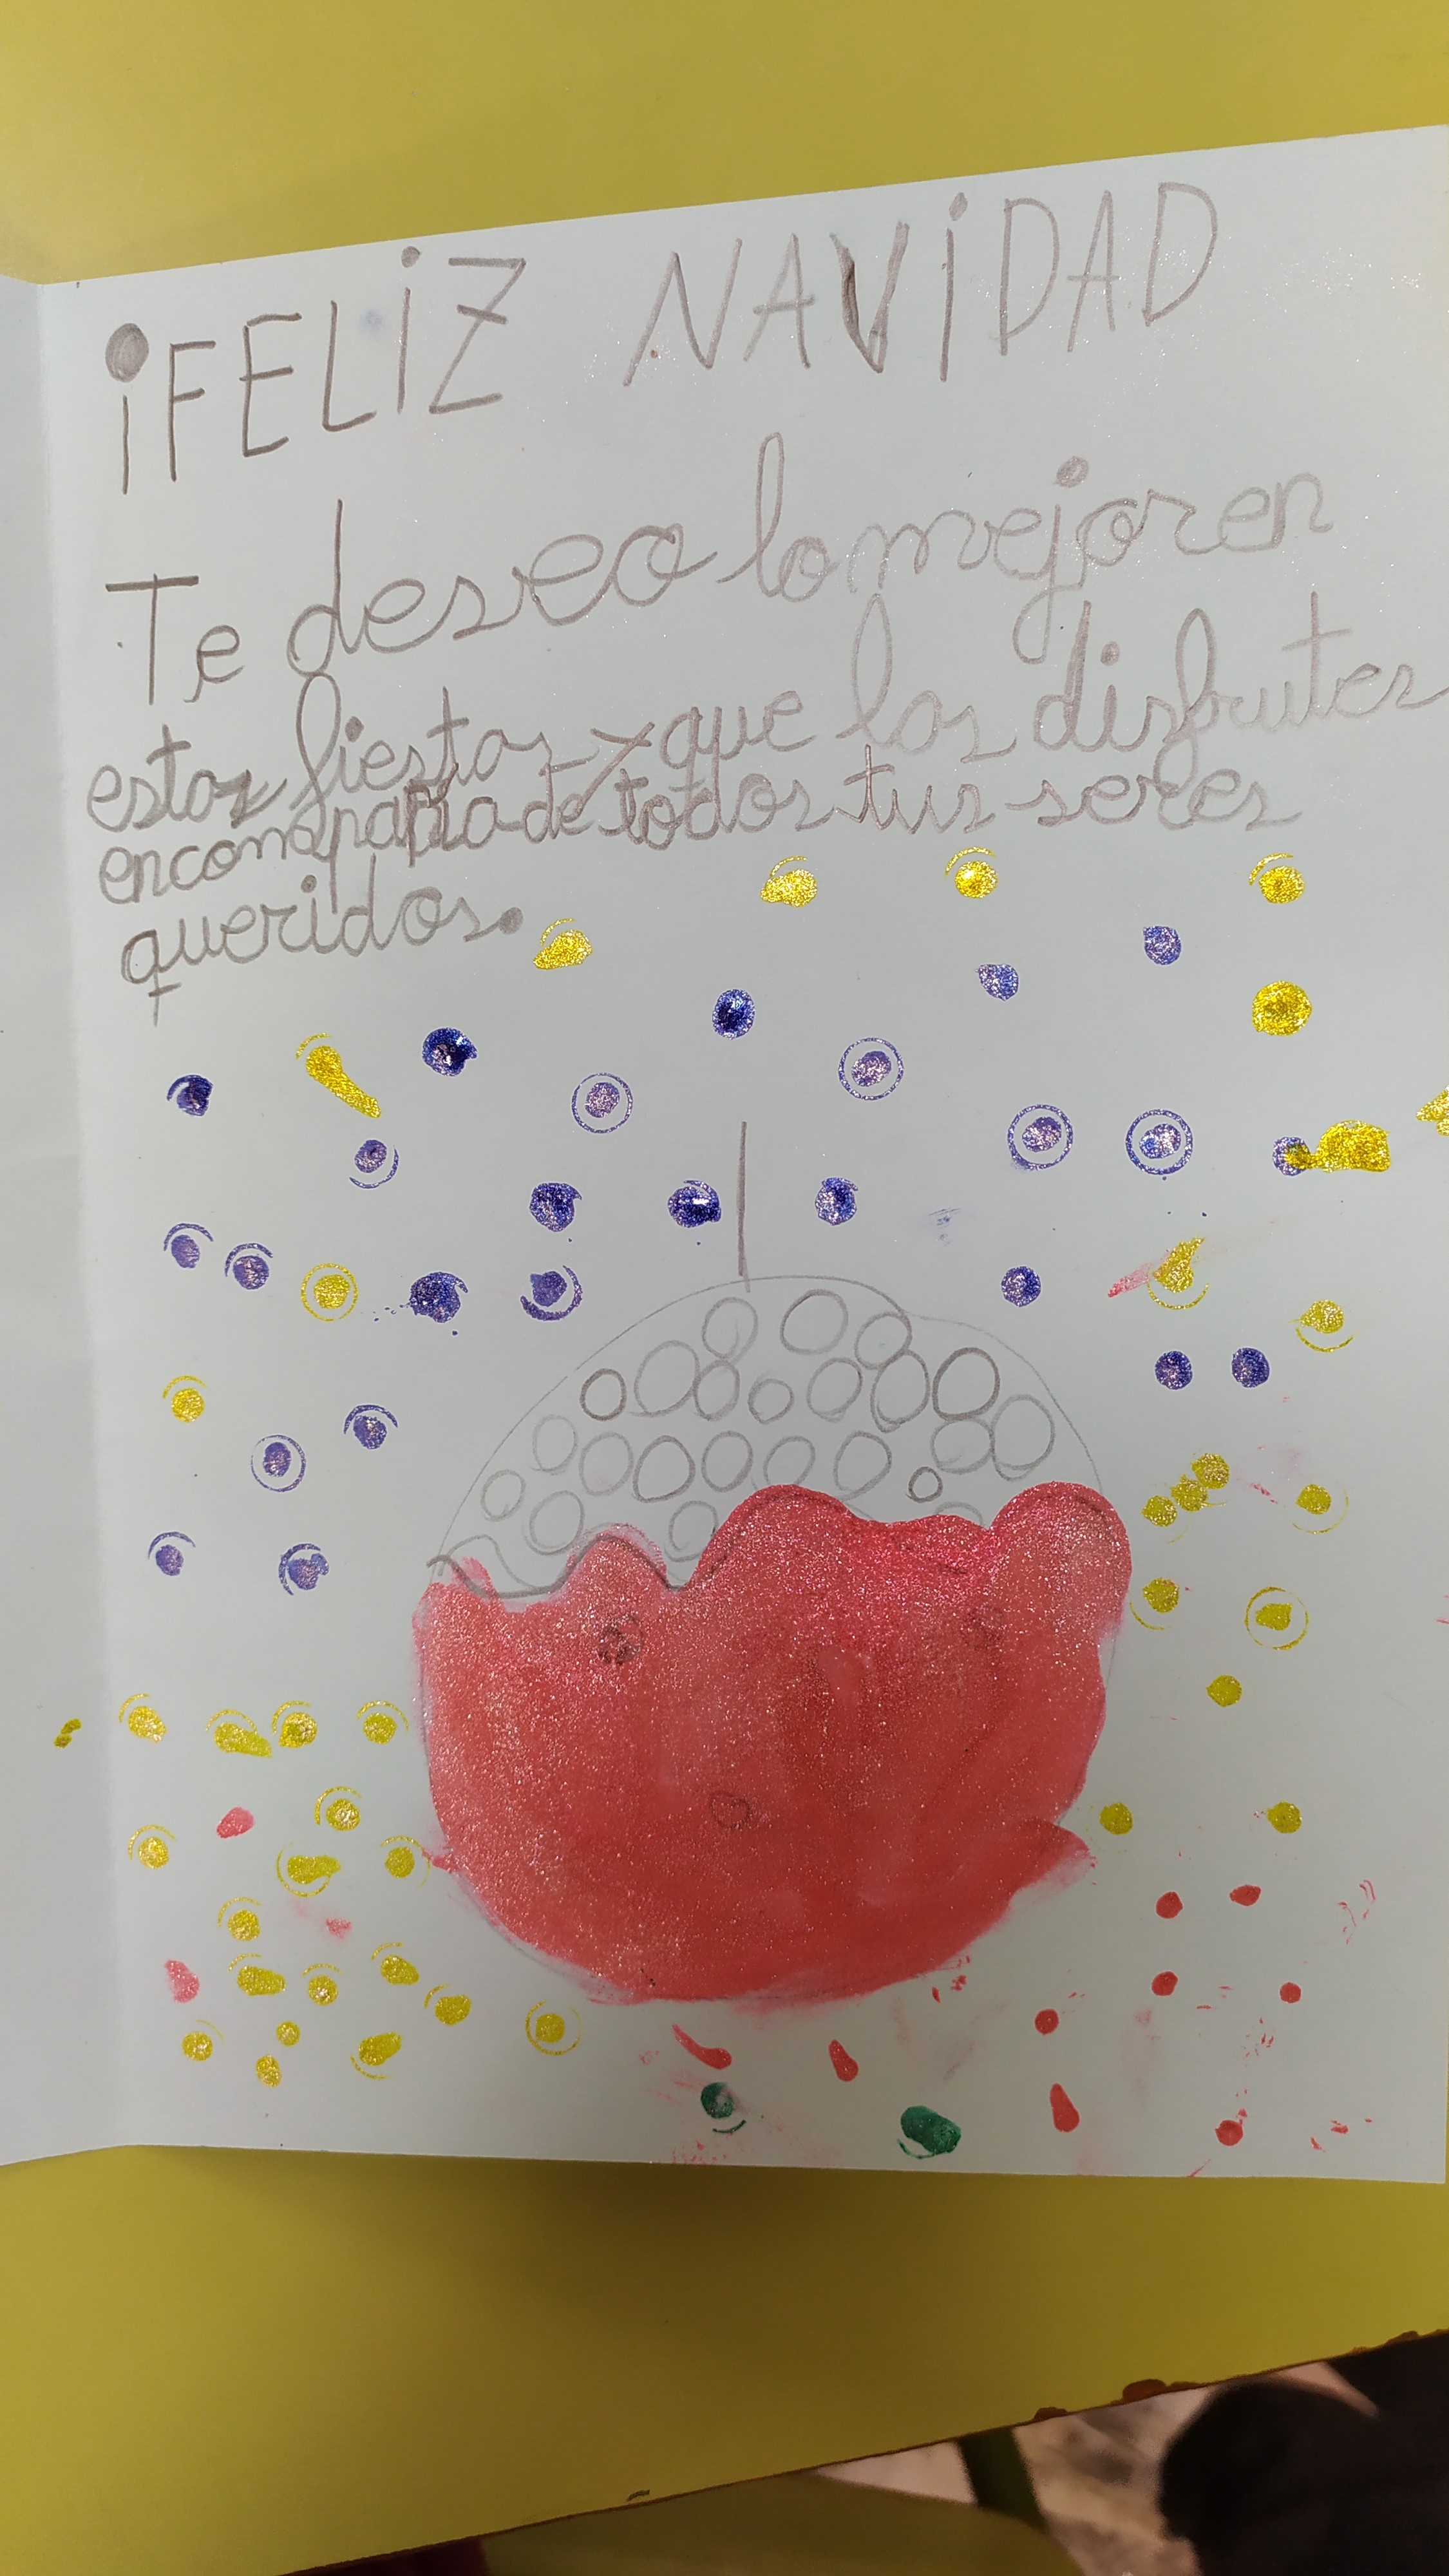 ¡FELIZ NAVIDAD
Te deseo lo mejor en
estas fiestas y que las disfrutes
en compañía de todos tus seres
queridos.